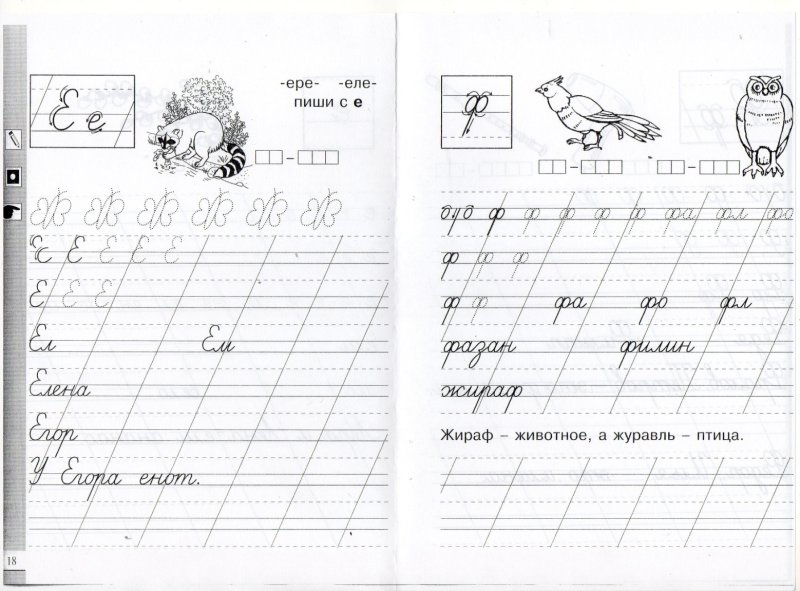 Е е
-ере- -еле-
пиши с е
Е Е Е Е Е
Е Е Е
Ел Ем
Елена
Егор
У Егора енот.
18
ф
ф ф ф ф ф ф фа фл фо
ф ф ф
ф ф фа фо фл
фазан филин
жираф
Жираф – животное, а журавль – птица.